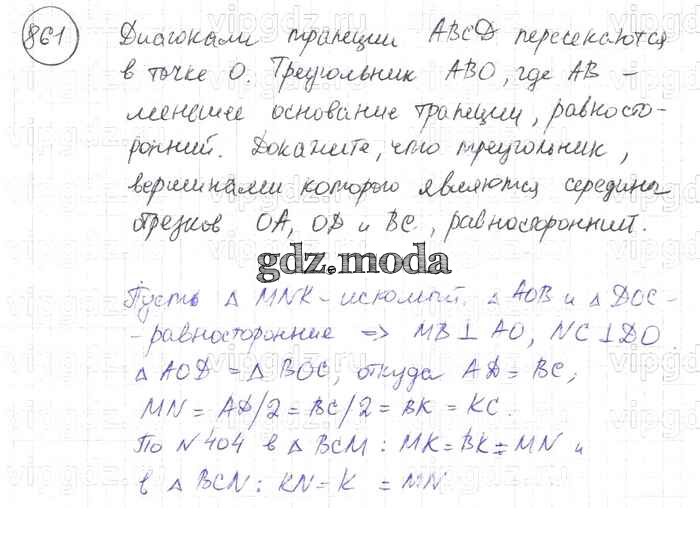 861
Диагонали трапеции ABCD пересекаются
в точке O. Треугольник ABO, где AB –
меньшее основание трапеции, равносто-
ронний. Докажите, что треугольник,
вершинами которого являются середины
отрезков OA, OD и BC, равносторонний.
gdz.moda
Пусть △ MNK – искомый. △ AOB и △ DOC –
- равносторонние => MB ⊥ AO, NC ⊥ DO
△ AOD = △ BOC, откуда AD = BC;
MN = AD/2 = BC/2 = BK = KC.
По N 404 в △ BCM : MK = BK = MN и
в △ BCN : KN = K = MN